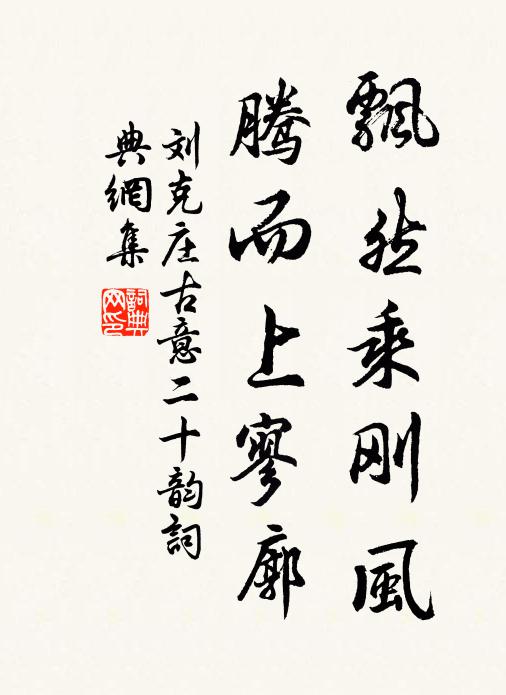 飄然乘刚風
腾而上寥廓
刘克庄古意二十韵詞
典網集
詞典网印